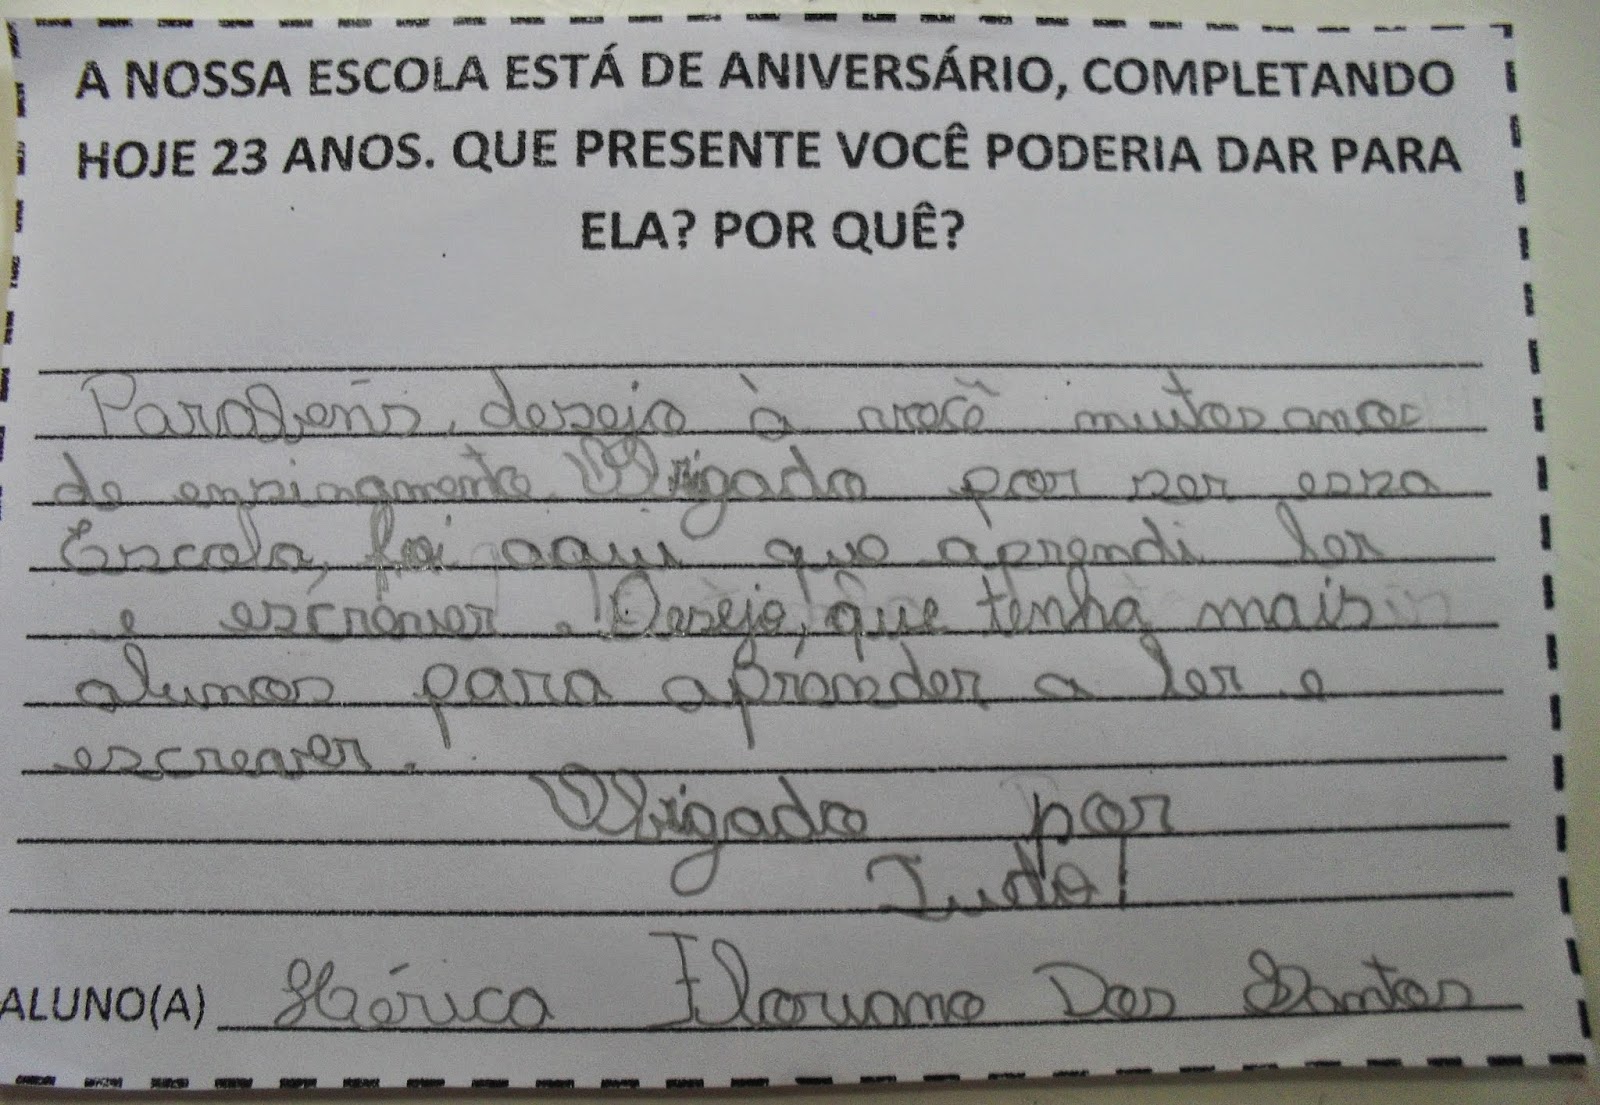 A NOSSA ESCOLA ESTÁ DE ANIVERSÁRIO, COMPLETANDO
HOJE 23 ANOS. QUE PRESENTE VOCÊ PODERIA DAR PARA
ELA? POR QUÊ?
Parabéns, desejo à você muitos anos
de ensinamento. Obrigado por ser essa
Escola, foi aqui que aprendi ler
e escrever. Desejo, que tenha mais
alunos para aprender a ler e
escrever.
Obrigado por
Tudo!
ALUNO(A) Hérica Floriano Dos Santos